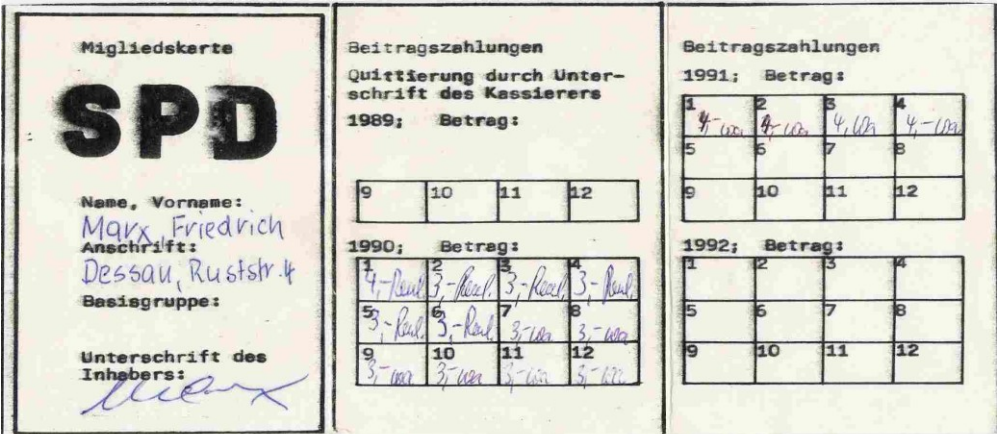 Migliedskarte
SPD
Name, Vorname:
Marx, Friedrich
Anschrift:
Dessau, Ruststr. 4
Basisgruppe:
Unterschrift des
Inhabers:
Marx
Beitragszahlungen
Quittierung durch Unter-
schrift des Kassierers
1989; Betrag:
9 10 11 12
1990; Betrag:
1 2 3 4
4,- 3,- 3,- 3,-
5 6 7 8
3,- 3,- 3,- 3,-
9 10 11 12
3,- 3,- 3,- 3,-
Beitragszahlungen
1991; Betrag:
1 2 3 4
4,- 4,- 4,- 4,-
5 6 7 8
9 10 11 12
1992; Betrag:
1 2 3 4
5 6 7 8
9 10 11 12